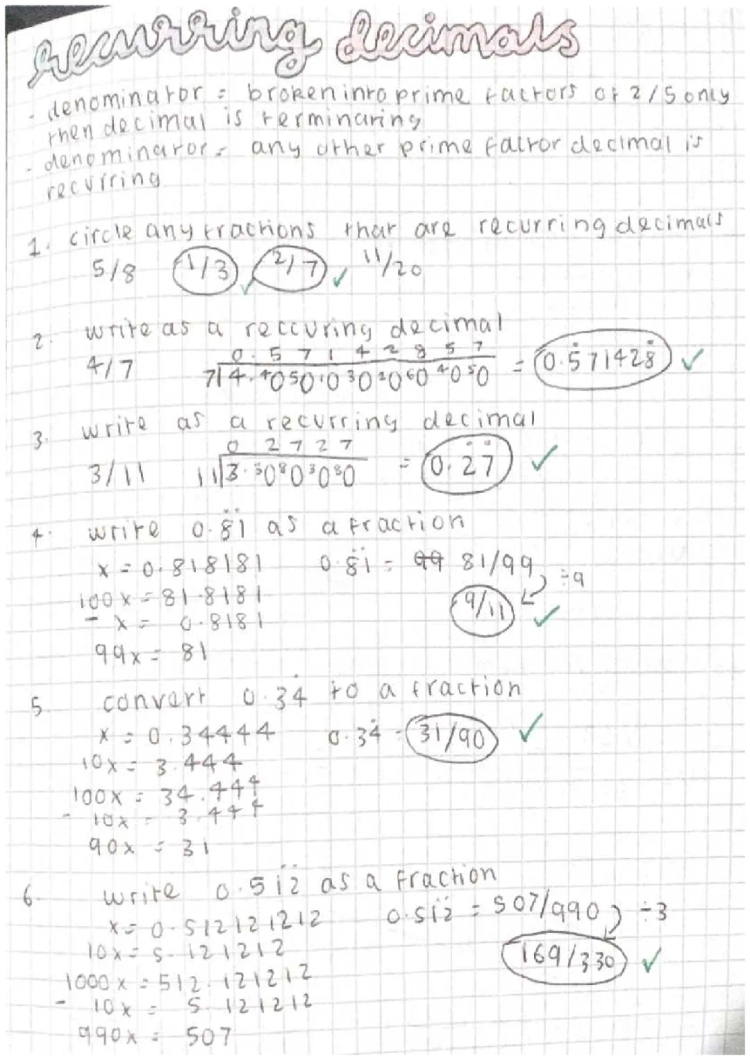 recurring decimals
- denominator = broken into prime factors of 2/5 only
then decimal is terminating
- denominator = any other prime factor decimal is
recurring
1. circle any fractions that are recurring decimals
5/8 1/3 ✓ 2/7 ✓ 11/20
2. write as a reccuring decimal
0.57142857
4/7 7|4.⁴0⁵0¹0³0²0⁶0⁴0⁵0 = 0.5̇71428̇ ✓
3. write as a recurring decimal
0 2727
3/11 11|3.³0⁸0³0⁸0 = 0.2̇7̇ ✓
4. write 0.8̇1̇ as a fraction
x = 0.818181 0.8̇1̇ = 81/99 ÷9
100x = 81.8181 9/11 ✓
- x = 0.8181
99x = 81
5. convert 0.34̇ to a fraction
x = 0.34444 0.34̇ = 31/90 ✓
10x = 3.444
100x = 34.444
- 10x = 3.444
90x = 31
6. write 0.51̇2̇ as a fraction
x = 0.512121212 0.51̇2̇ = 507/990 ÷3
10x = 5.121212 169/330 ✓
1000x = 512.121212
- 10x = 5.121212
990x = 507